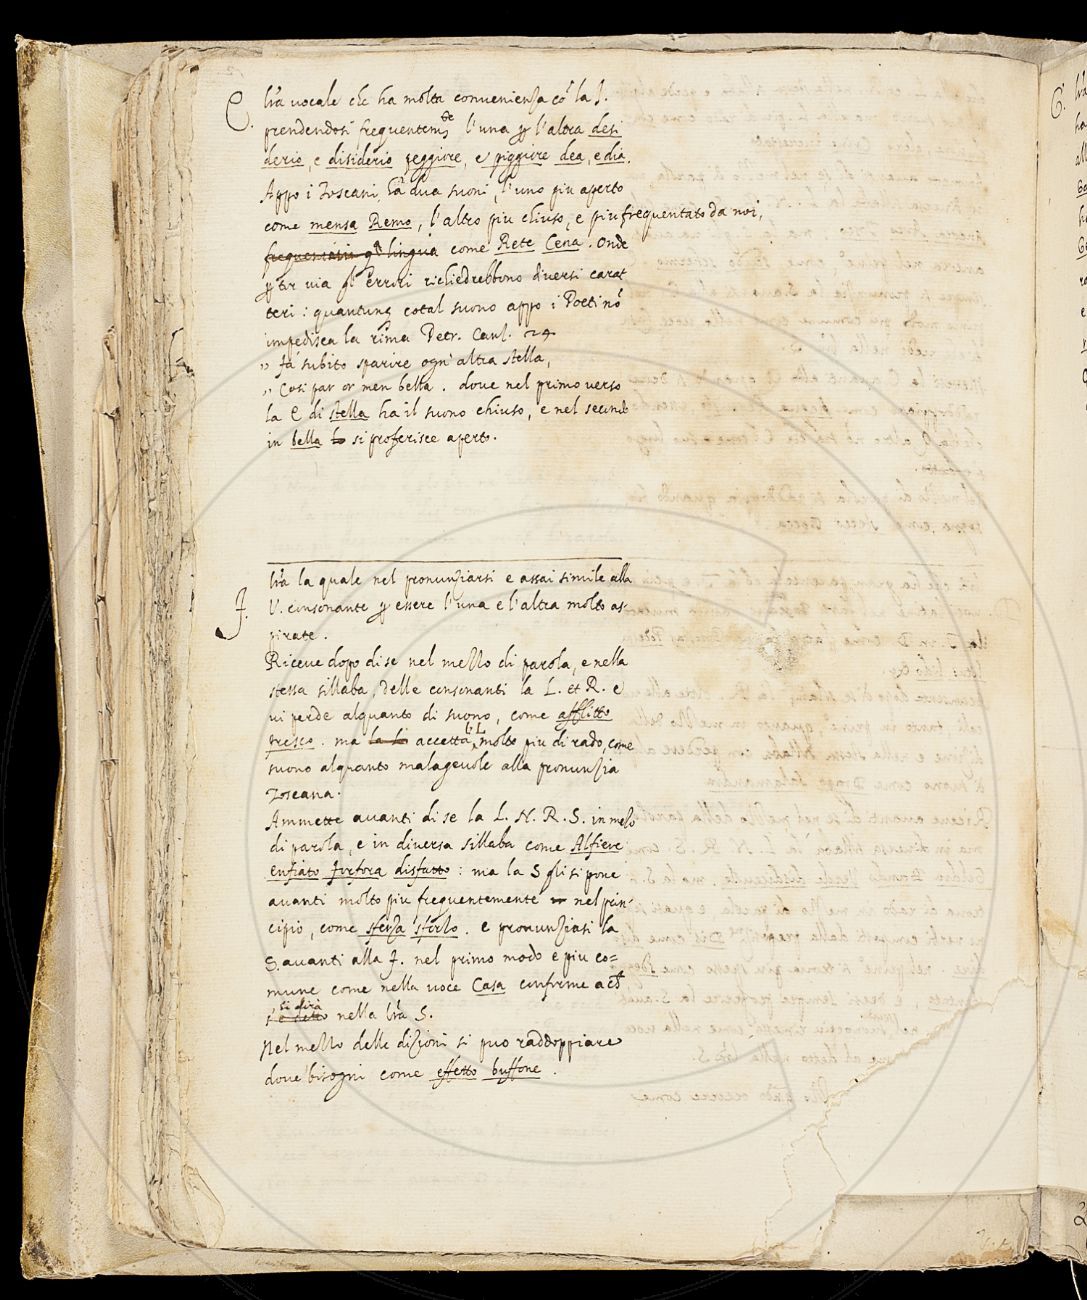 E. l̃ra vocale che ha molta convenienza cõ la J.
prendendosi frequentem.te l'una p l'altra desi
derio, e disiderio peggiore, e piggiore dea, e dia.
Appo i Toscani, hà dua suoni, l'uno piu aperto
come mensa Remo, l'altro piu chiuso, e piu frequentato da noi,
lingua come Rete Cena. Onde
p tor via gl'errori richiedrebbono diversi carat
teri: quantunq cotal suono appo i Poeti nõ
impedisca la rima Petr. Canz. 24.
„ Fà subito sparire ogn'altra stella,
„ Cosi par or men bella. dove nel primo verso
la E di stella ha il suono chiuso, e nel secondo
in bella si proferisce aperto.
F. l̃ra la quale nel pronunziarsi e assai simile alla
V. consonante p essere l'una e l'altra molto as-
pirate.
Riceve dopo di se nel mezzo di parola, e nella
stessa sillaba, delle consonanti la L. et R. e
vi perde alquanto di suono, come afflitto
fresco. ma la L accetta la L molto piu di rado, come
suono alquanto malagevole alla pronunzia
Toscana.
Ammette avanti di se la L. N. R. S. in mezo
di parola, e in diversa sillaba come Alfiere
enfiato forfora disfatto: ma la S gli si pone
avanti molto piu frequentemente nel prin-
cipio, come sferza sforzo. e pronunziasi la
S. avanti alla F. nel primo modo e piu co=
mune come nella voce Casa conforme a ch̃
si dirà
s'è detto nella l̃ra S.
Nel mezzo delle dizioni si puo raddoppiare
dove bisogni come effetto buffone.